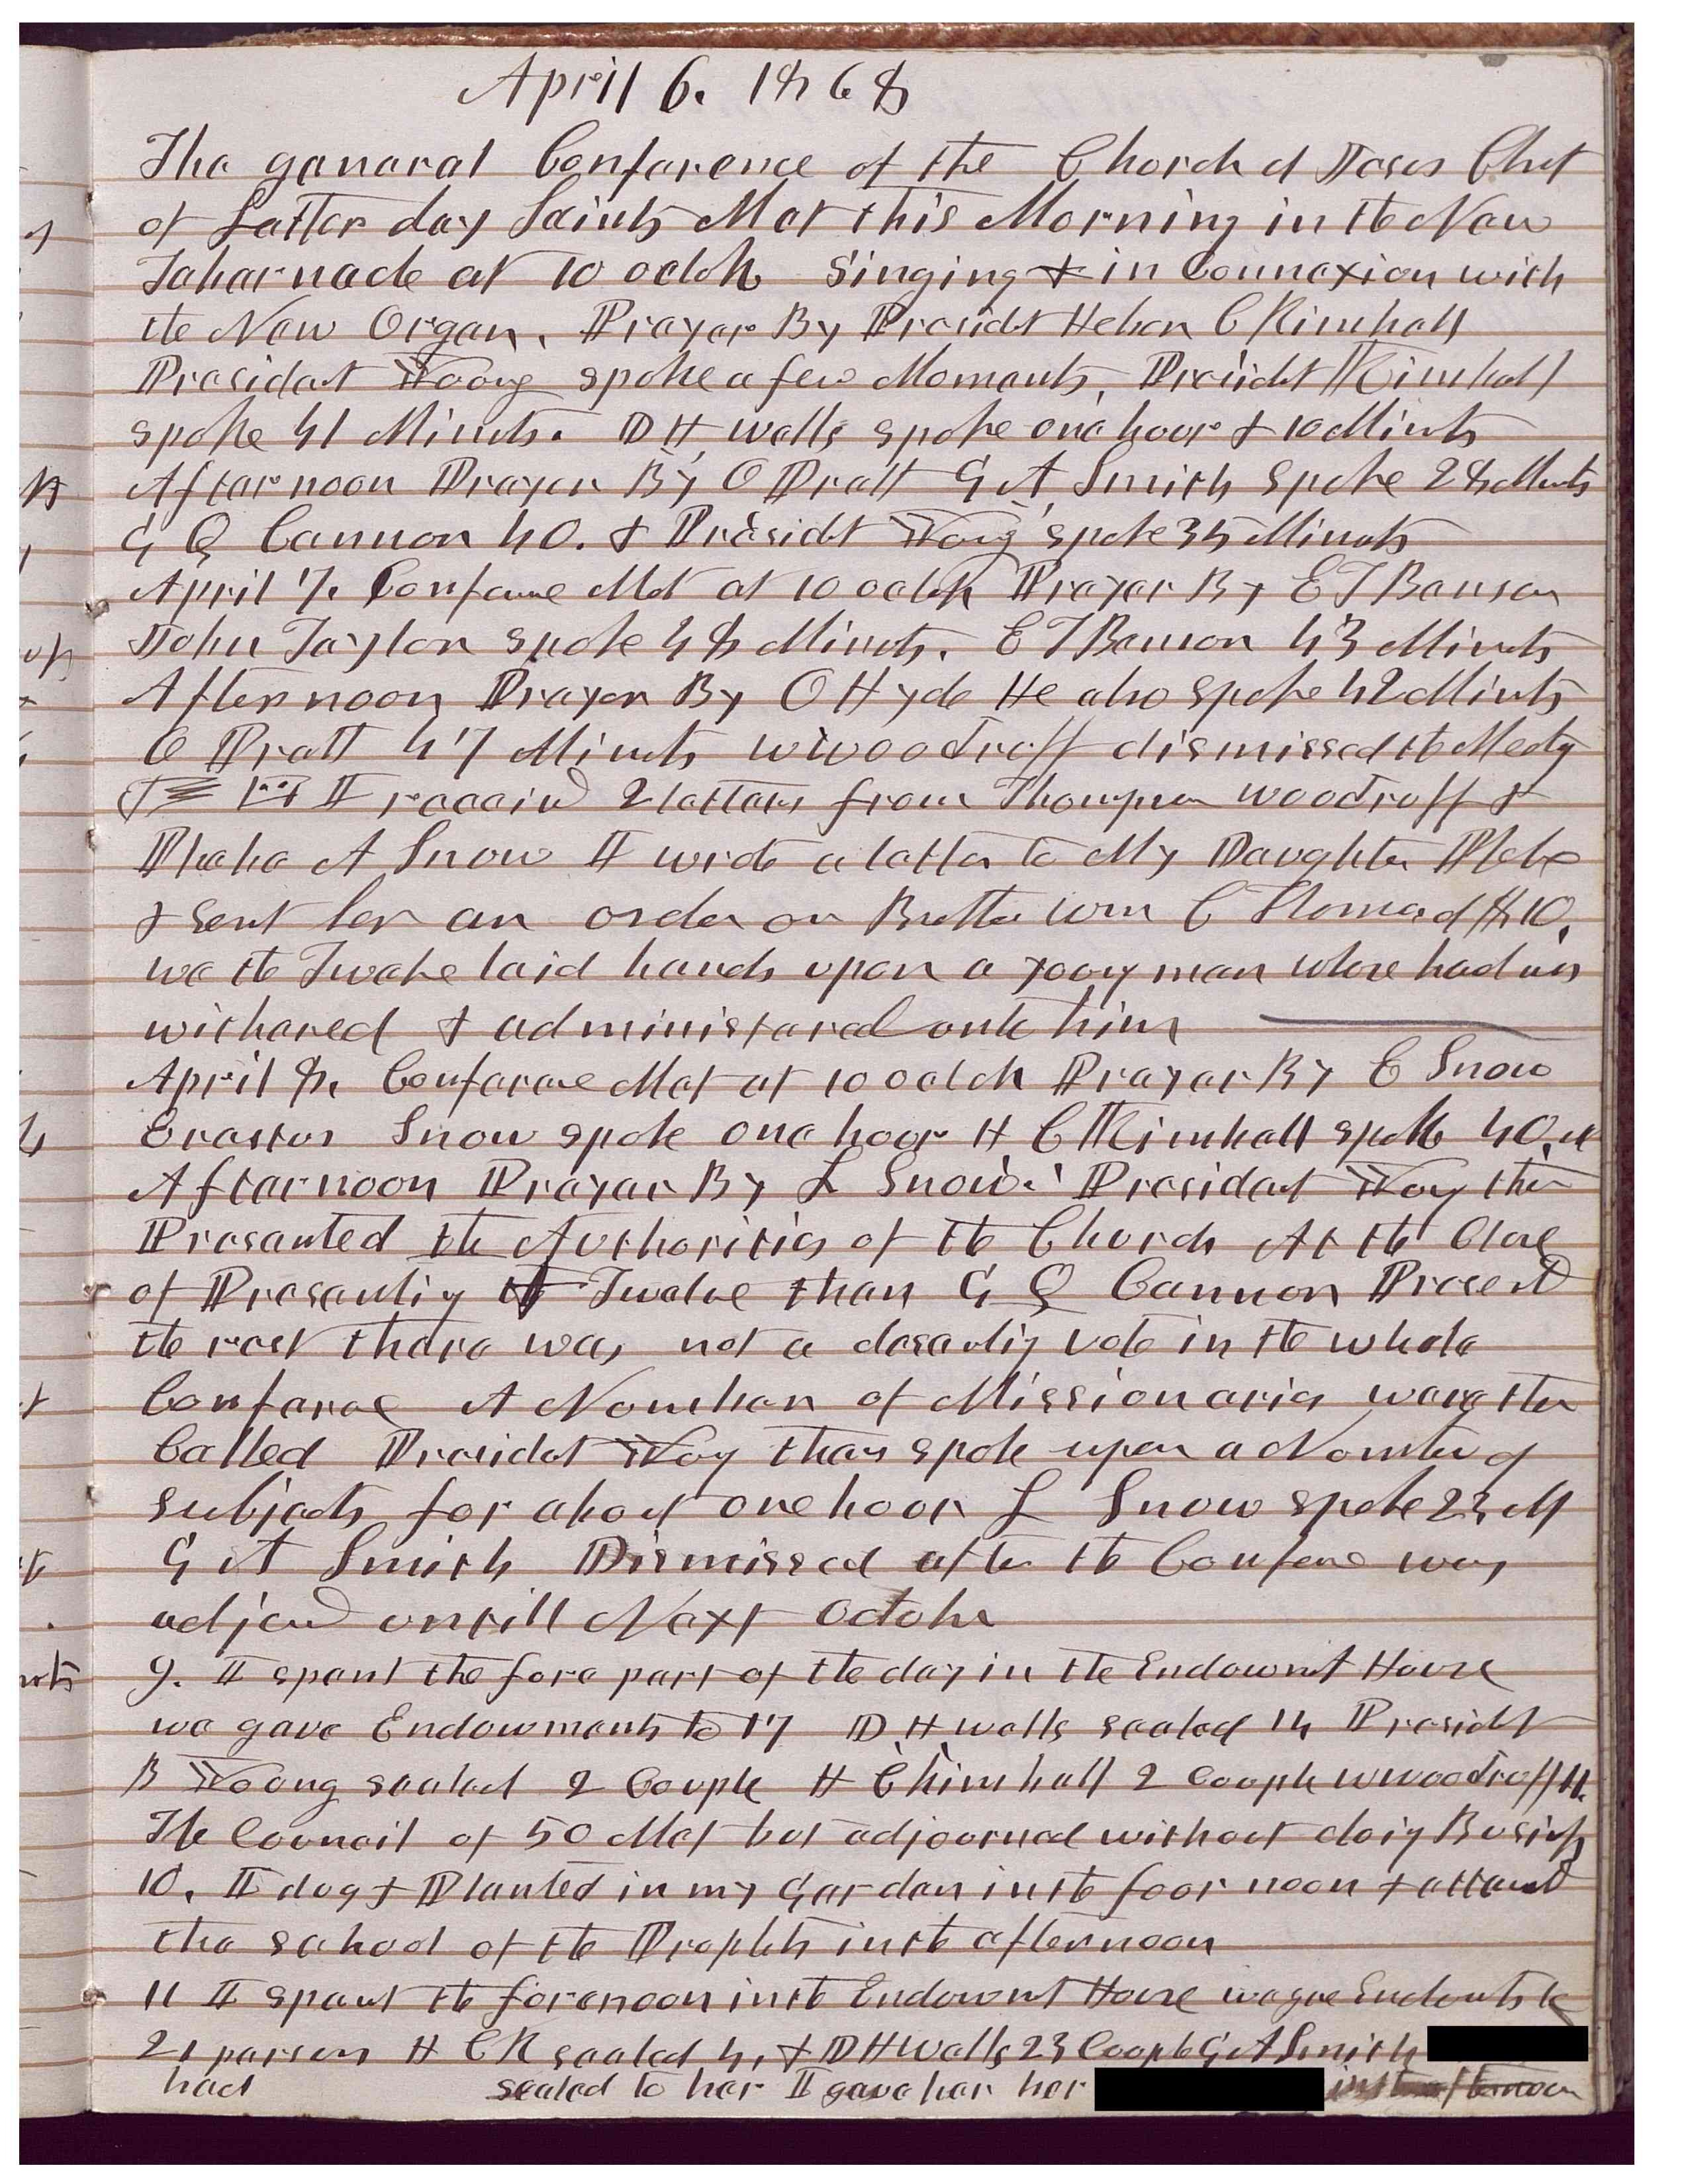 April 6. 1868
The general Conference of the Church of Jesus Christ
of Latter day Saints Met this Morning in the New
Tabernacle at 10 oclok Singing & in Connexion with
the New Organ. Prayer By Presidet Heber C Kimball
President Young spoke a few Moments, Presidet Kimball
spoke 41 Minuts. D H wells spoke one hour & 10 Minuts
Afternoon Prayer By O Pratt G A Smith spoke 28 Minuts
G Q Cannon 40. & Presidt Young spoke 35 Minuts
April 7. Confernce Met at 10 oclok Prayer By E T Benson
John Taylor spoke 48 Minuts. E T Benson 43 Minuts
Afternoon Prayer By O Hyde He also spoke 42 Minuts
O Pratt 47 Minuts W Woodruff dismissed the Meetg
I receivd 2 letters from Thompson Woodruff &
Phebe A Snow I wrote a letter to My Daughter Phebe
& sent her an order on Brother Wm C Stomas of $10.
we the Twelve laid hands upon a young man whose had was
withered & administered unto him
April 8. Conference Met at 10 oclok Prayer By E Snow
Erastus Snow spoke one hour H C Kimball spoke 40. M
Afternoon Prayer By L Snow. President Young then
Presented the Authorities of the Church At the Close
of Presenting the Twelve then G Q Cannon Presentd
the rest there was not a desenting vote in the whole
Conference A Number of Missionaries were then
Called Presidet Young then spoke upon a Number of
subjects for about one hour L Snow spoke 23 M
G A Smith Dismissed after the Conference was
adjournd untill Next Octobr
9. I spent the fore part of the day in the Endowmt House
we gave Endowments to 17 D H wells sealed 14 Presidet
B Young sealed 2 Couple H C Kimball 2 Couple W Woodruff 11.
The Council of 50 Met but adjourned without doing Busiess
10. I dug & Planted in my Garden in the foornoon & attend
the school of the Prophets in the afternoon
11 I spent the forenoon in the Endowmt House we gave Endowmts to
21 persons H C K sealed 4, & D H Wells 23 Couple G A Smith
had sealed to her I gave her her in the afternoon